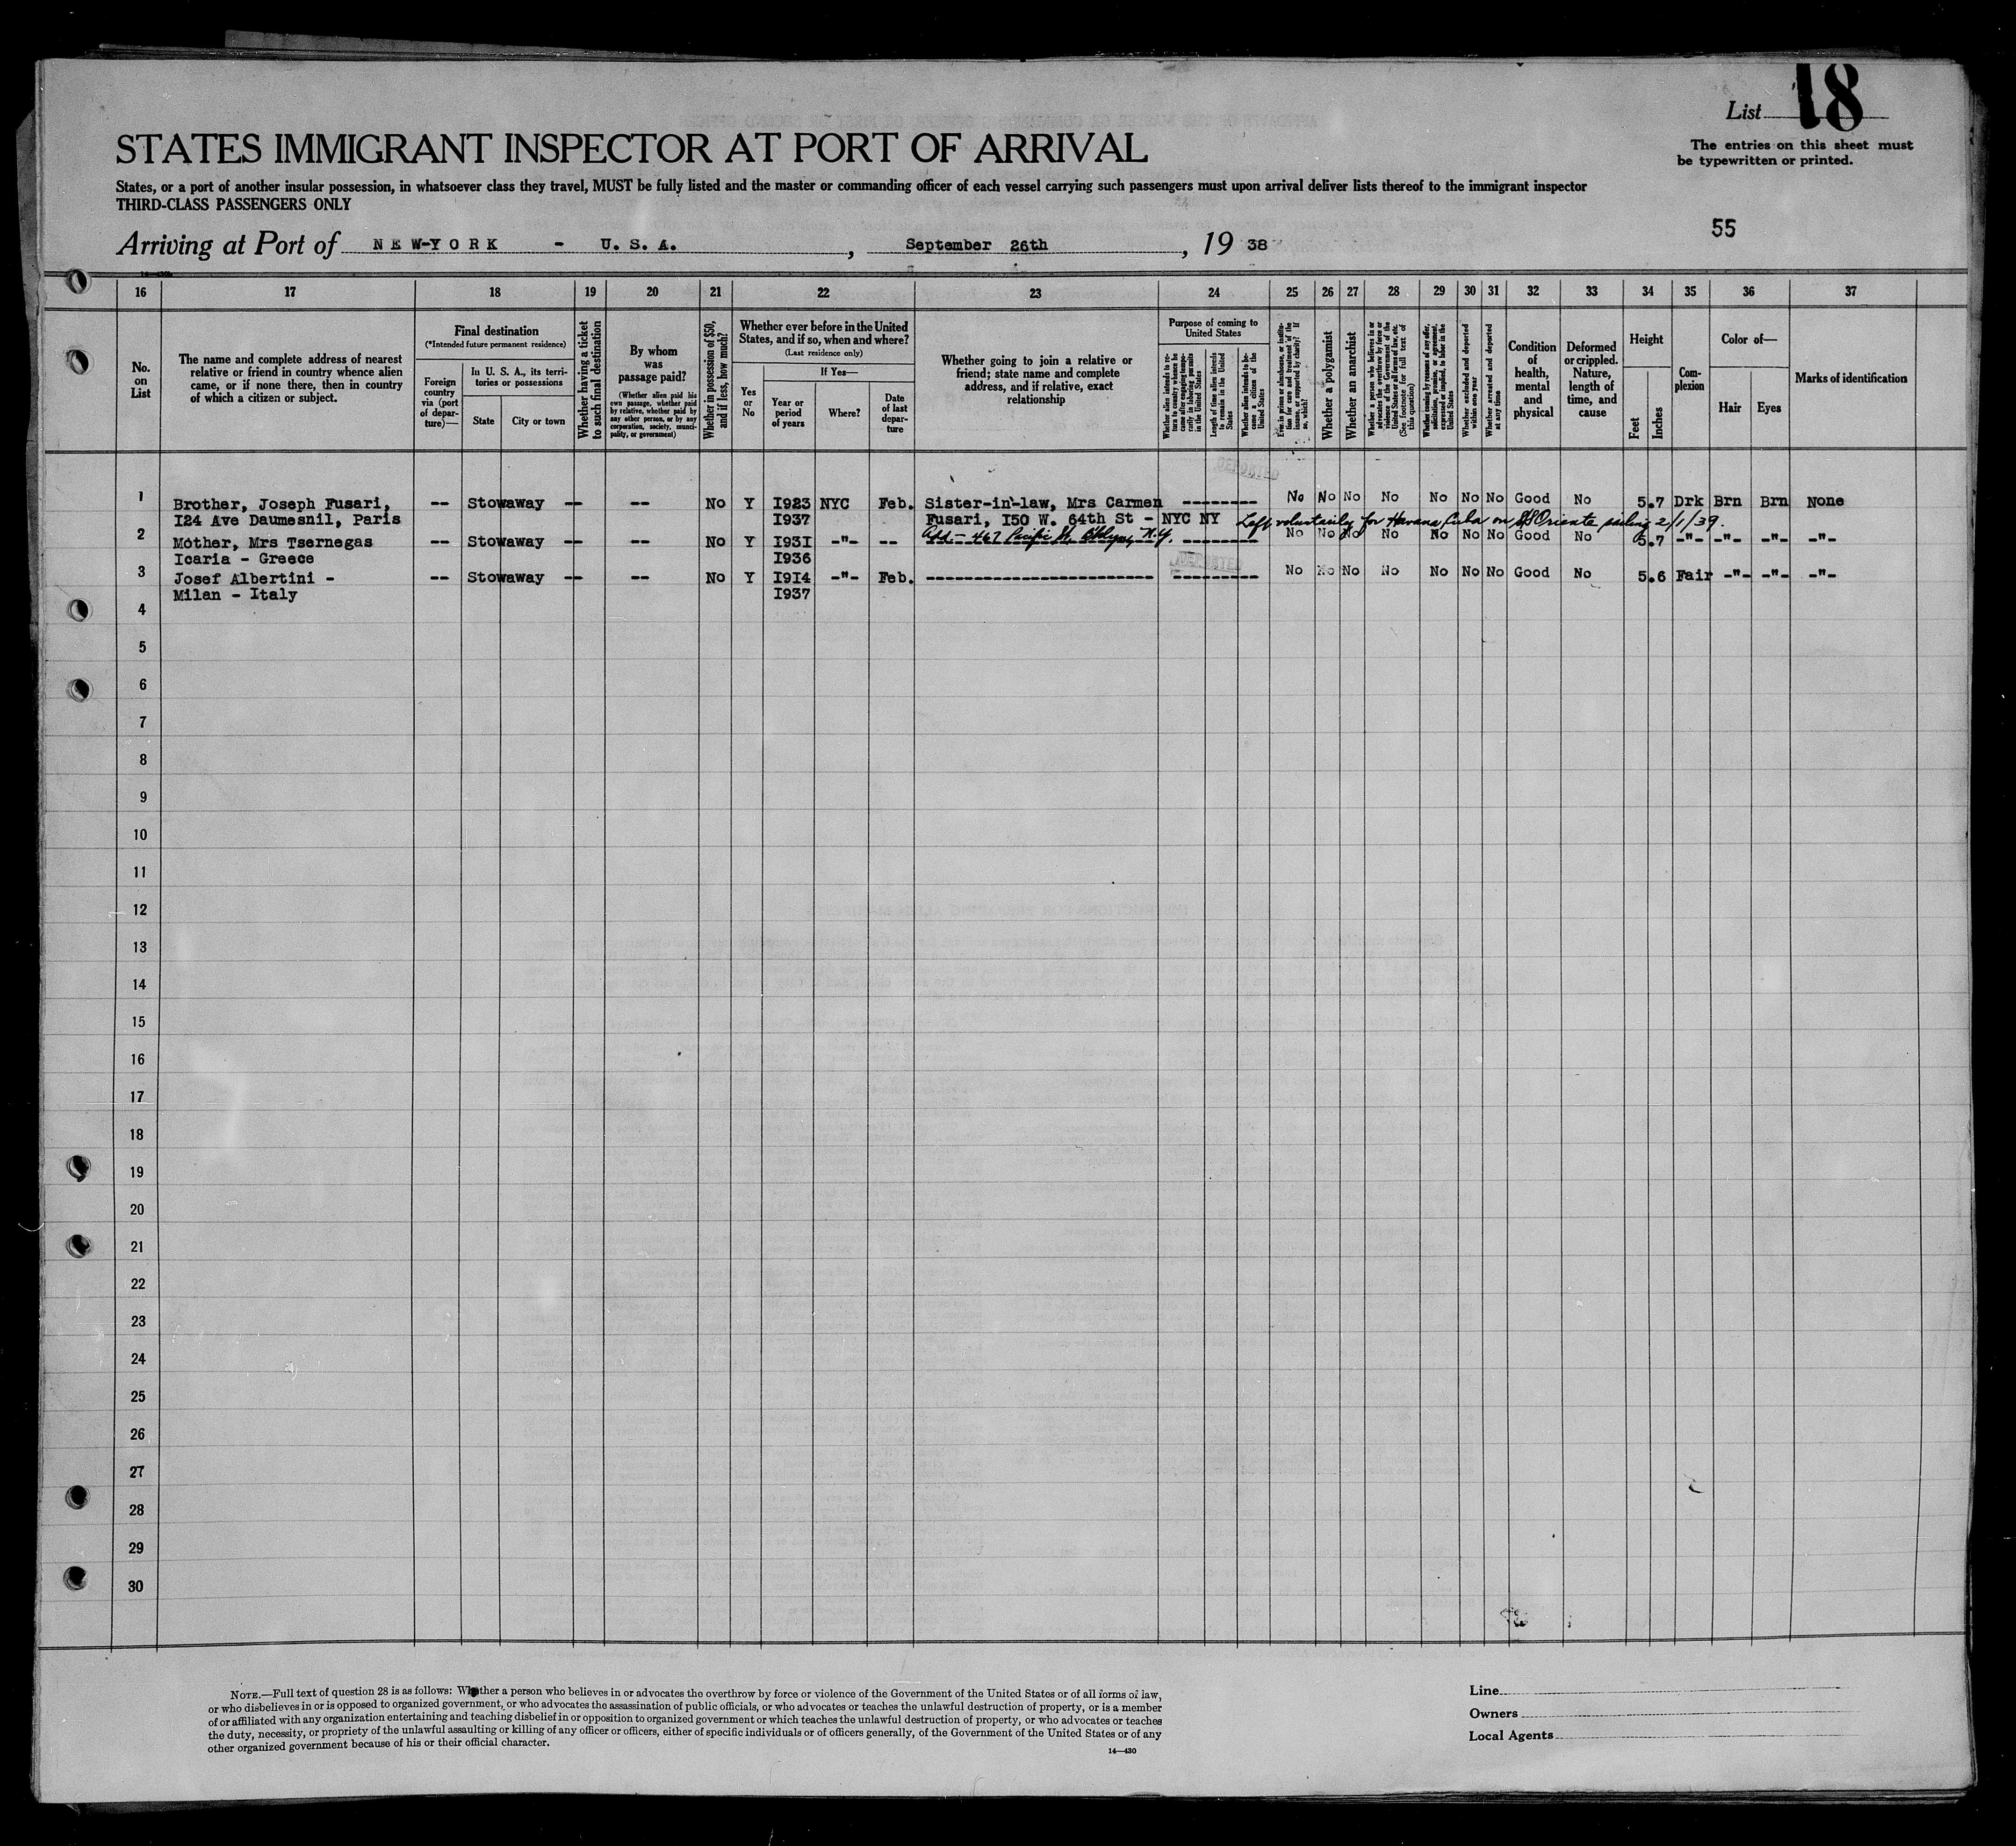 List 18
The entries on this sheet must
be typewritten or printed.
STATES IMMIGRANT INSPECTOR AT PORT OF ARRIVAL
States, or a port of another insular possession, in whatsoever class they travel, MUST be fully listed and the master or commanding officer of each vessel carrying such passengers must upon arrival deliver lists thereof to the immigrant inspector
THIRD-CLASS PASSENGERS ONLY
55
Arriving at Port of NEW-YORK - U. S. A., September 26th, 19 38
16 17 18 19 20 21 22 23 24 25 26 27 28 29 30 31 32 33 34 35 36 37
No.
on
List
The name and complete address of nearest
relative or friend in country whence alien
came, or if none there, then in country
of which a citizen or subject.
Final destination
(*Intended future permanent residence)
Foreign
country
via (port
of depar-
ture)—
In U. S. A., its terri-
tories or possessions
State
City or town
Whether having a ticket
to such final destination
By whom
was
passage paid?
(Whether alien paid his
own passage, whether paid
by relative, whether paid by
any other person, or by any
corporation, society, munici-
pality, or government)
Whether in possession of $50,
and if less, how much?
Whether ever before in the United
States, and if so, when and where?
(Last residence only)
Yes
or
No
If Yes—
Year or
period
of years
Where?
Date
of last
depar-
ture
Whether going to join a relative or
friend; state name and complete
address, and if relative, exact
relationship
Purpose of coming to
United States
Length of time alien intends
to remain in the United
States
Whether alien intends to be-
come a citizen of the
United States
Whether a polygamist
Whether an anarchist
Whether excluded and deported
within one year
Whether arrested and deported
at any time
Condition
of
health,
mental
and
physical
Deformed
or crippled.
Nature,
length of
time, and
cause
Height
Feet
Inches
Com-
plexion
Color of—
Hair
Eyes
Marks of identification
1 Brother, Joseph Fusari, -- Stowaway -- -- No Y I923 NYC Feb. Sister-in-law, Mrs Carmen -------- No No No No No No No Good No 5.7 Drk Brn Brn None
I24 Ave Daumesnil, Paris I937 Fusari, I50 W. 64th St - NYC NY Left voluntarily for Havana Cuba on SS Oriente sailing 2/1/39.
Add - 467 Pacific St. Bklyn, N.Y.
2 Mother, Mrs Tsernegas -- Stowaway -- -- No Y I93I -"- -- -------- No No No No No No No Good No 5.7 -"- -"- -"- -"-
Icaria - Greece I936
DEPORTED
3 Josef Albertini - -- Stowaway -- -- No Y I9I4 -"- Feb. ------------------------ --------- No No No No No No No Good No 5.6 Fair -"- -"- -"-
Milan - Italy I937
4
5
6
7
8
9
10
11
12
13
14
15
16
17
18
19
20
21
22
23
24
25
26
27
28
29
30
NOTE.—Full text of question 28 is as follows: Whether a person who believes in or advocates the overthrow by force or violence of the Government of the United States or of all forms of law,
or who disbelieves in or is opposed to organized government, or who advocates the assassination of public officials, or who advocates or teaches the unlawful destruction of property, or is a member
of or affiliated with any organization entertaining and teaching disbelief in or opposition to organized government or which teaches the unlawful destruction of property, or who advocates or teaches
the duty, necessity, or propriety of the unlawful assaulting or killing of any officer or officers, either of specific individuals or of officers generally, of the Government of the United States or of any
other organized government because of his or their official character.
14—430
Line
Owners
Local Agents